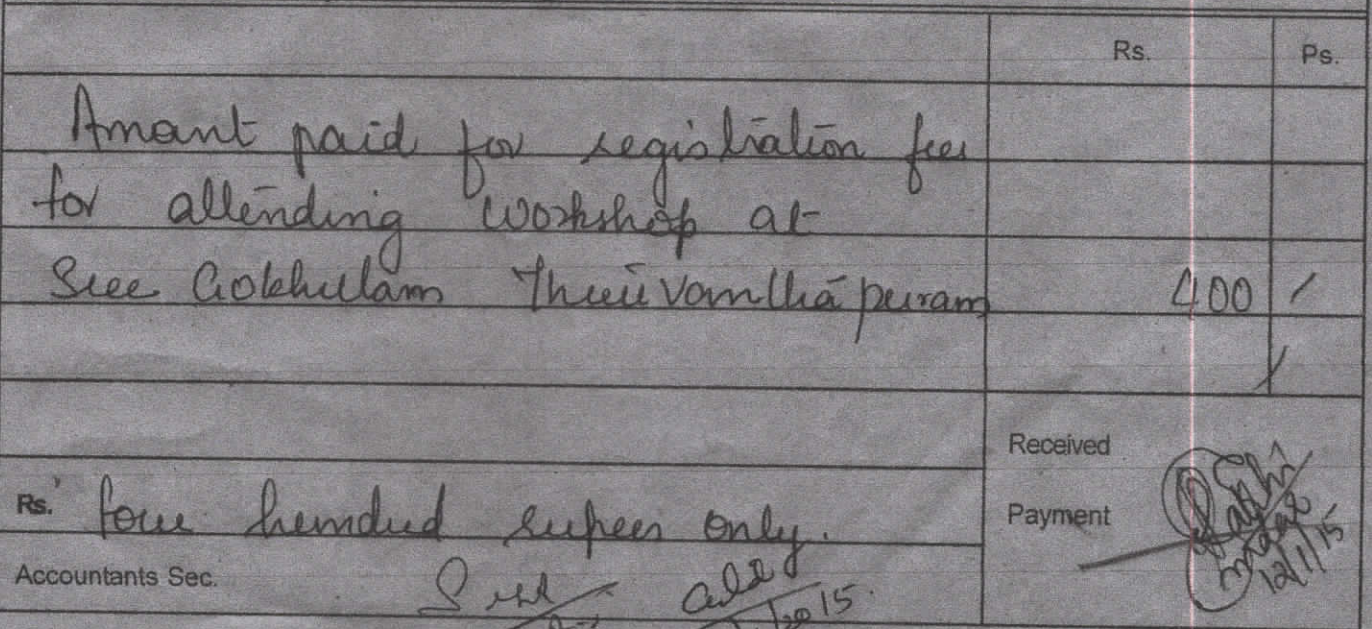 Rs. Ps.
Amount paid for registration fees
for attending workshop at
Sree Gokhulam Thiruvanthapuram 400 /
Received
Rs. four hundred rupees only.
Payment
Accountants Sec.
12/1/15